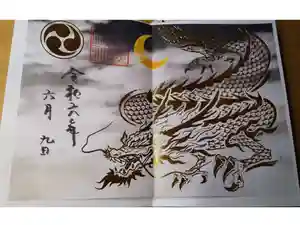 令和六年
六月
九日